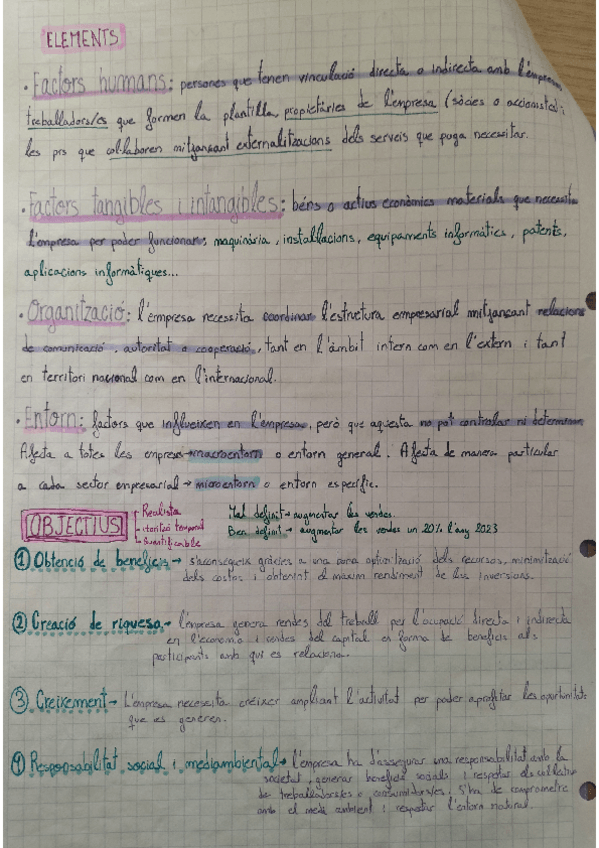 ELEMENTS
· Factors humans: persones que tenen vinculació directa o indirecta amb l'empresa
treballadors/es que formen la plantilla, propietàries de l'empresa (sòcies o accionistes) i
les prs que col·laboren mitjançant externalitzacions dels serveis que puga necessitar.
· Factors tangibles i intangibles: béns o actius econòmics materials que necessita
l'empresa per poder funcionar: maquinària, instal·lacions, equipaments informàtics, patents,
aplicacions informàtiques...
· Organització: l'empresa necessita coordinar l'estructura empresarial mitjançant relacions
de comunicació, autoritat o cooperació, tant en l'àmbit intern com en l'extern i tant
en territori nacional com en l'internacional.
· Entorn: factors que influeixen en l'empresa, però que aquesta no pot controlar ni determinar
Afecta a totes les empreses → macroentorn o entorn general. Afecta de manera particular
a cada sector empresarial → microentorn o entorn específic.
OBJECTIUS
Realista
temporal
Quantificable
Mal definit → augmentar les vendes.
Ben definit → augmentar les vendes un 20% l'any 2023
① Obtenció de beneficis → s'aconsegueix gràcies a una bona optimització dels recursos, minimització
dels costos i obtenint el màxim rendiment de les inversions.
② Creació de riquesa → l'empresa genera rendes del treball per l'ocupació directa i indirecta
en l'economia i rendes del capital en forma de beneficis als
participants amb qui es relaciona.
③ Creixement → L'empresa necesita créixer ampliant l'activitat per poder aprofitar les oportunitats
que es generen.
④ Responsabilitat social i mediambiental → l'empresa ha d'assegurar una responsabilitat amb la
societat, generar beneficis socials i respectar els col·lectius
de treballadors/es o consumidors/es. S'ha de comprometre
amb el medi ambient i respectar l'entorn natural.